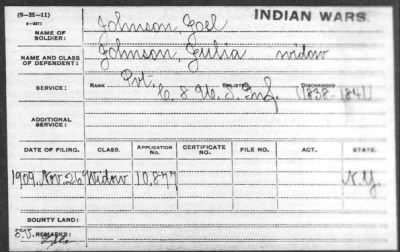 (3—IX—11)
INDIAN WARS.
NAME OF SOLDIER: Johnson, Joel
NAME AND CLASS OF DEPENDENT: Johnson, Julia widow
SERVICE: RANK Pvt. ENLISTED DISCHARGED
C. 8 U.S. Inf. (1838-1841)
ADDITIONAL SERVICE:
DATE OF FILING. CLASS. APPLICATION NO. CERTIFICATE NO. FILE NO. ACT. STATE.
1909. Nov. 26 Widow 10,877 N.Y.
BOUNTY LAND:
REMARKS: